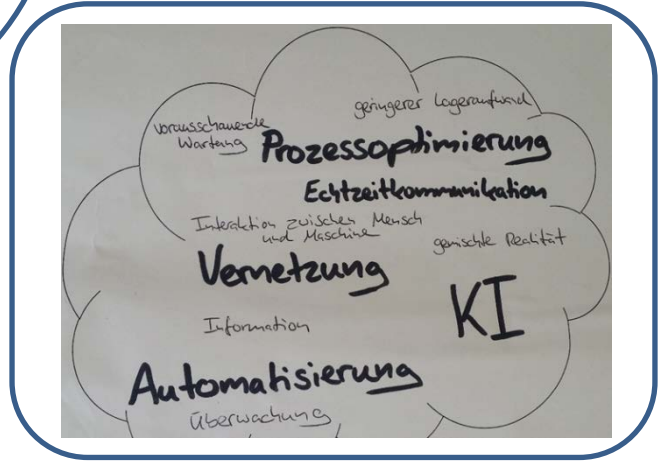 geringerer Lageraufwand
vorausschauende
Wartung
Prozessoptimierung
Echtzeitkommunikation
Interaktion zwischen Mensch
und Maschine
gemischte Realität
Vernetzung
KI
Information
Automatisierung
Überwachung